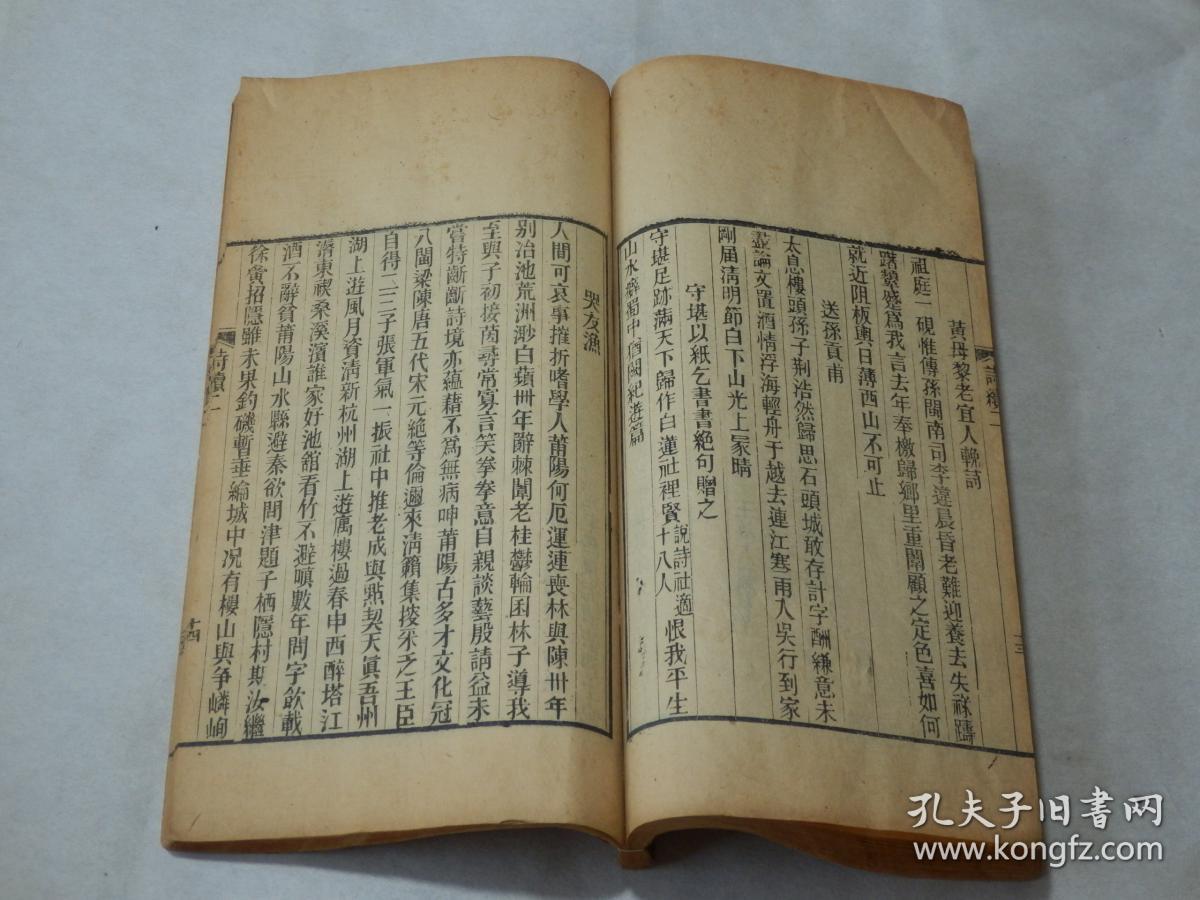 黃母黎老宜人輓詩
祖庭二硯惟傳孫閩南司李違晨昏老難迎養去失祿躊
躇顰蹙爲我言去年奉檄歸鄉里重闈顧之定色喜如何
就近阻板輿日薄西山不可止
送孫貢甫
太息樓頭孫子荆浩然歸思石頭城敢存計字酬縑意未
盡論文置酒情浮海輕舟于越去連江寒雨入吳行到家
剛届淸明節白下山光上冢晴
守堪以紙乞書書絶句贈之
守堪足跡滿天下歸作白蓮社裡賢說詩社適十八人恨我平生
山水癖蜀中猶闕紀遊篇
十三
哭友漁
人間可哀事摧折嗜學人莆陽何厄運連喪林與陳卅年
别冶池荒洲渺白蘋卅年辭棘闈老桂鬱輪囷林子導我
至與子初接茵尋常寡言笑拳拳意自親談藝殷請益未
嘗特斷斷詩境亦蘊藉不爲無病呻莆陽古多才文化冠
八閩梁陳唐五代宋元絶等倫邇來淸籟集搜采乏王臣
自得二三子張軍氣一振社中推老成與㸃契天眞吾州
湖上遊風月資淸新杭州湖上遊厲樓過春申西醉塔江
濱東禊桑溪濱誰家好池舘看竹不避嗔數年問字飲載
酒不辭貧莆陽山水縣避秦欲問津題子栖隱村期汝繼
徐黃招隱雖未果釣磯暫垂綸城中况有樱山與爭嶙峋
詩續二
十四
孔夫子旧書网
www.kongfz.com